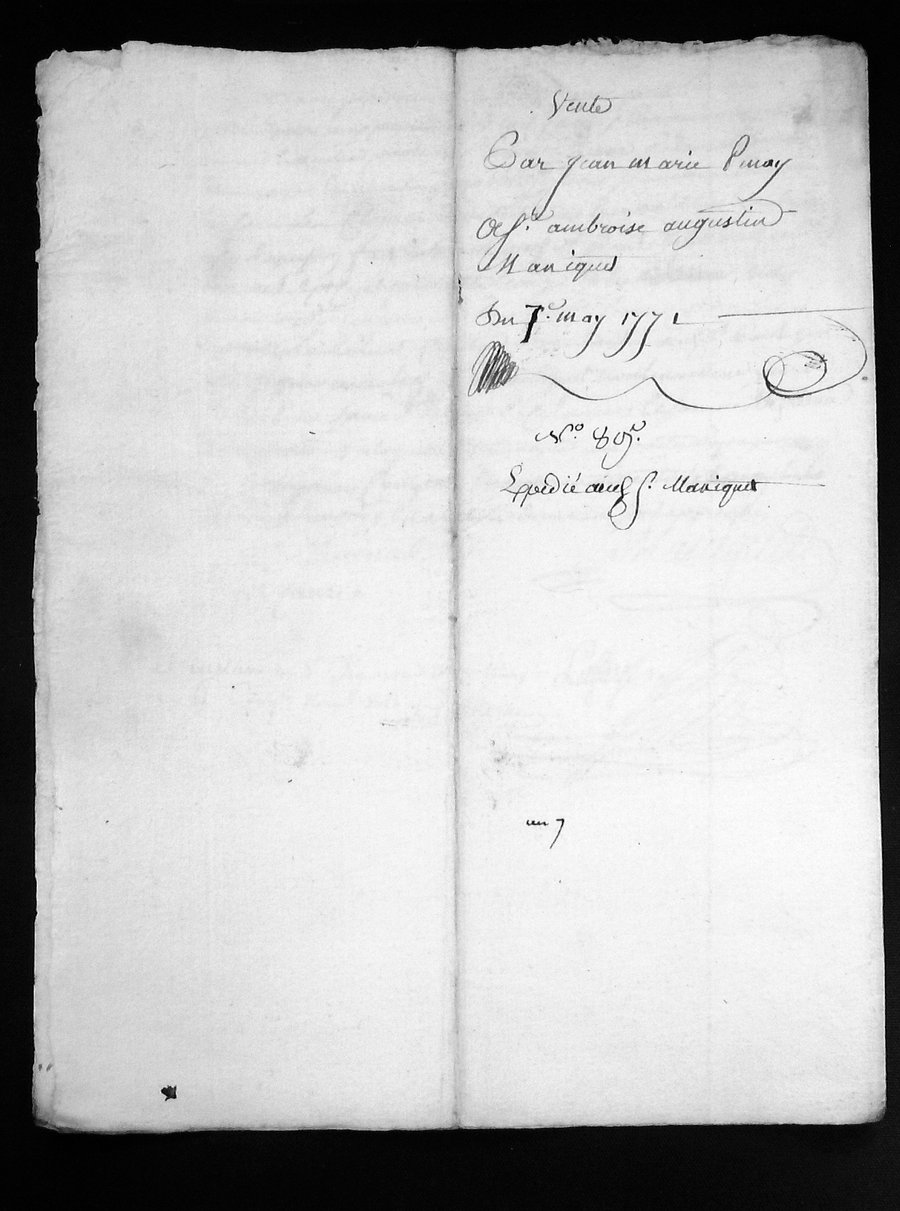 Vente
Par jean marie Pinay
A Sr. ambroise augustin
Maniquet
Du 7e. may 1771
No. 89e.
Expedié aud S. Maniquet
un 7